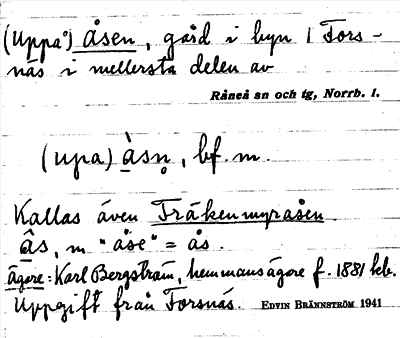 (Uppå) åsen, gård i byn i Fors-
näs i mellersta delen av
Råneå sn och tg, Norrb. l.
(upa) åsn̥, bf. m.
Kallas även Fräkenmyråsen.
âs, m "åse" = ås.
Ägare: Karl Bergström, hemmansägare f. 1881 heb.
Uppgift från Forsnäs. EDVIN BRÄNNSTRÖM 1941